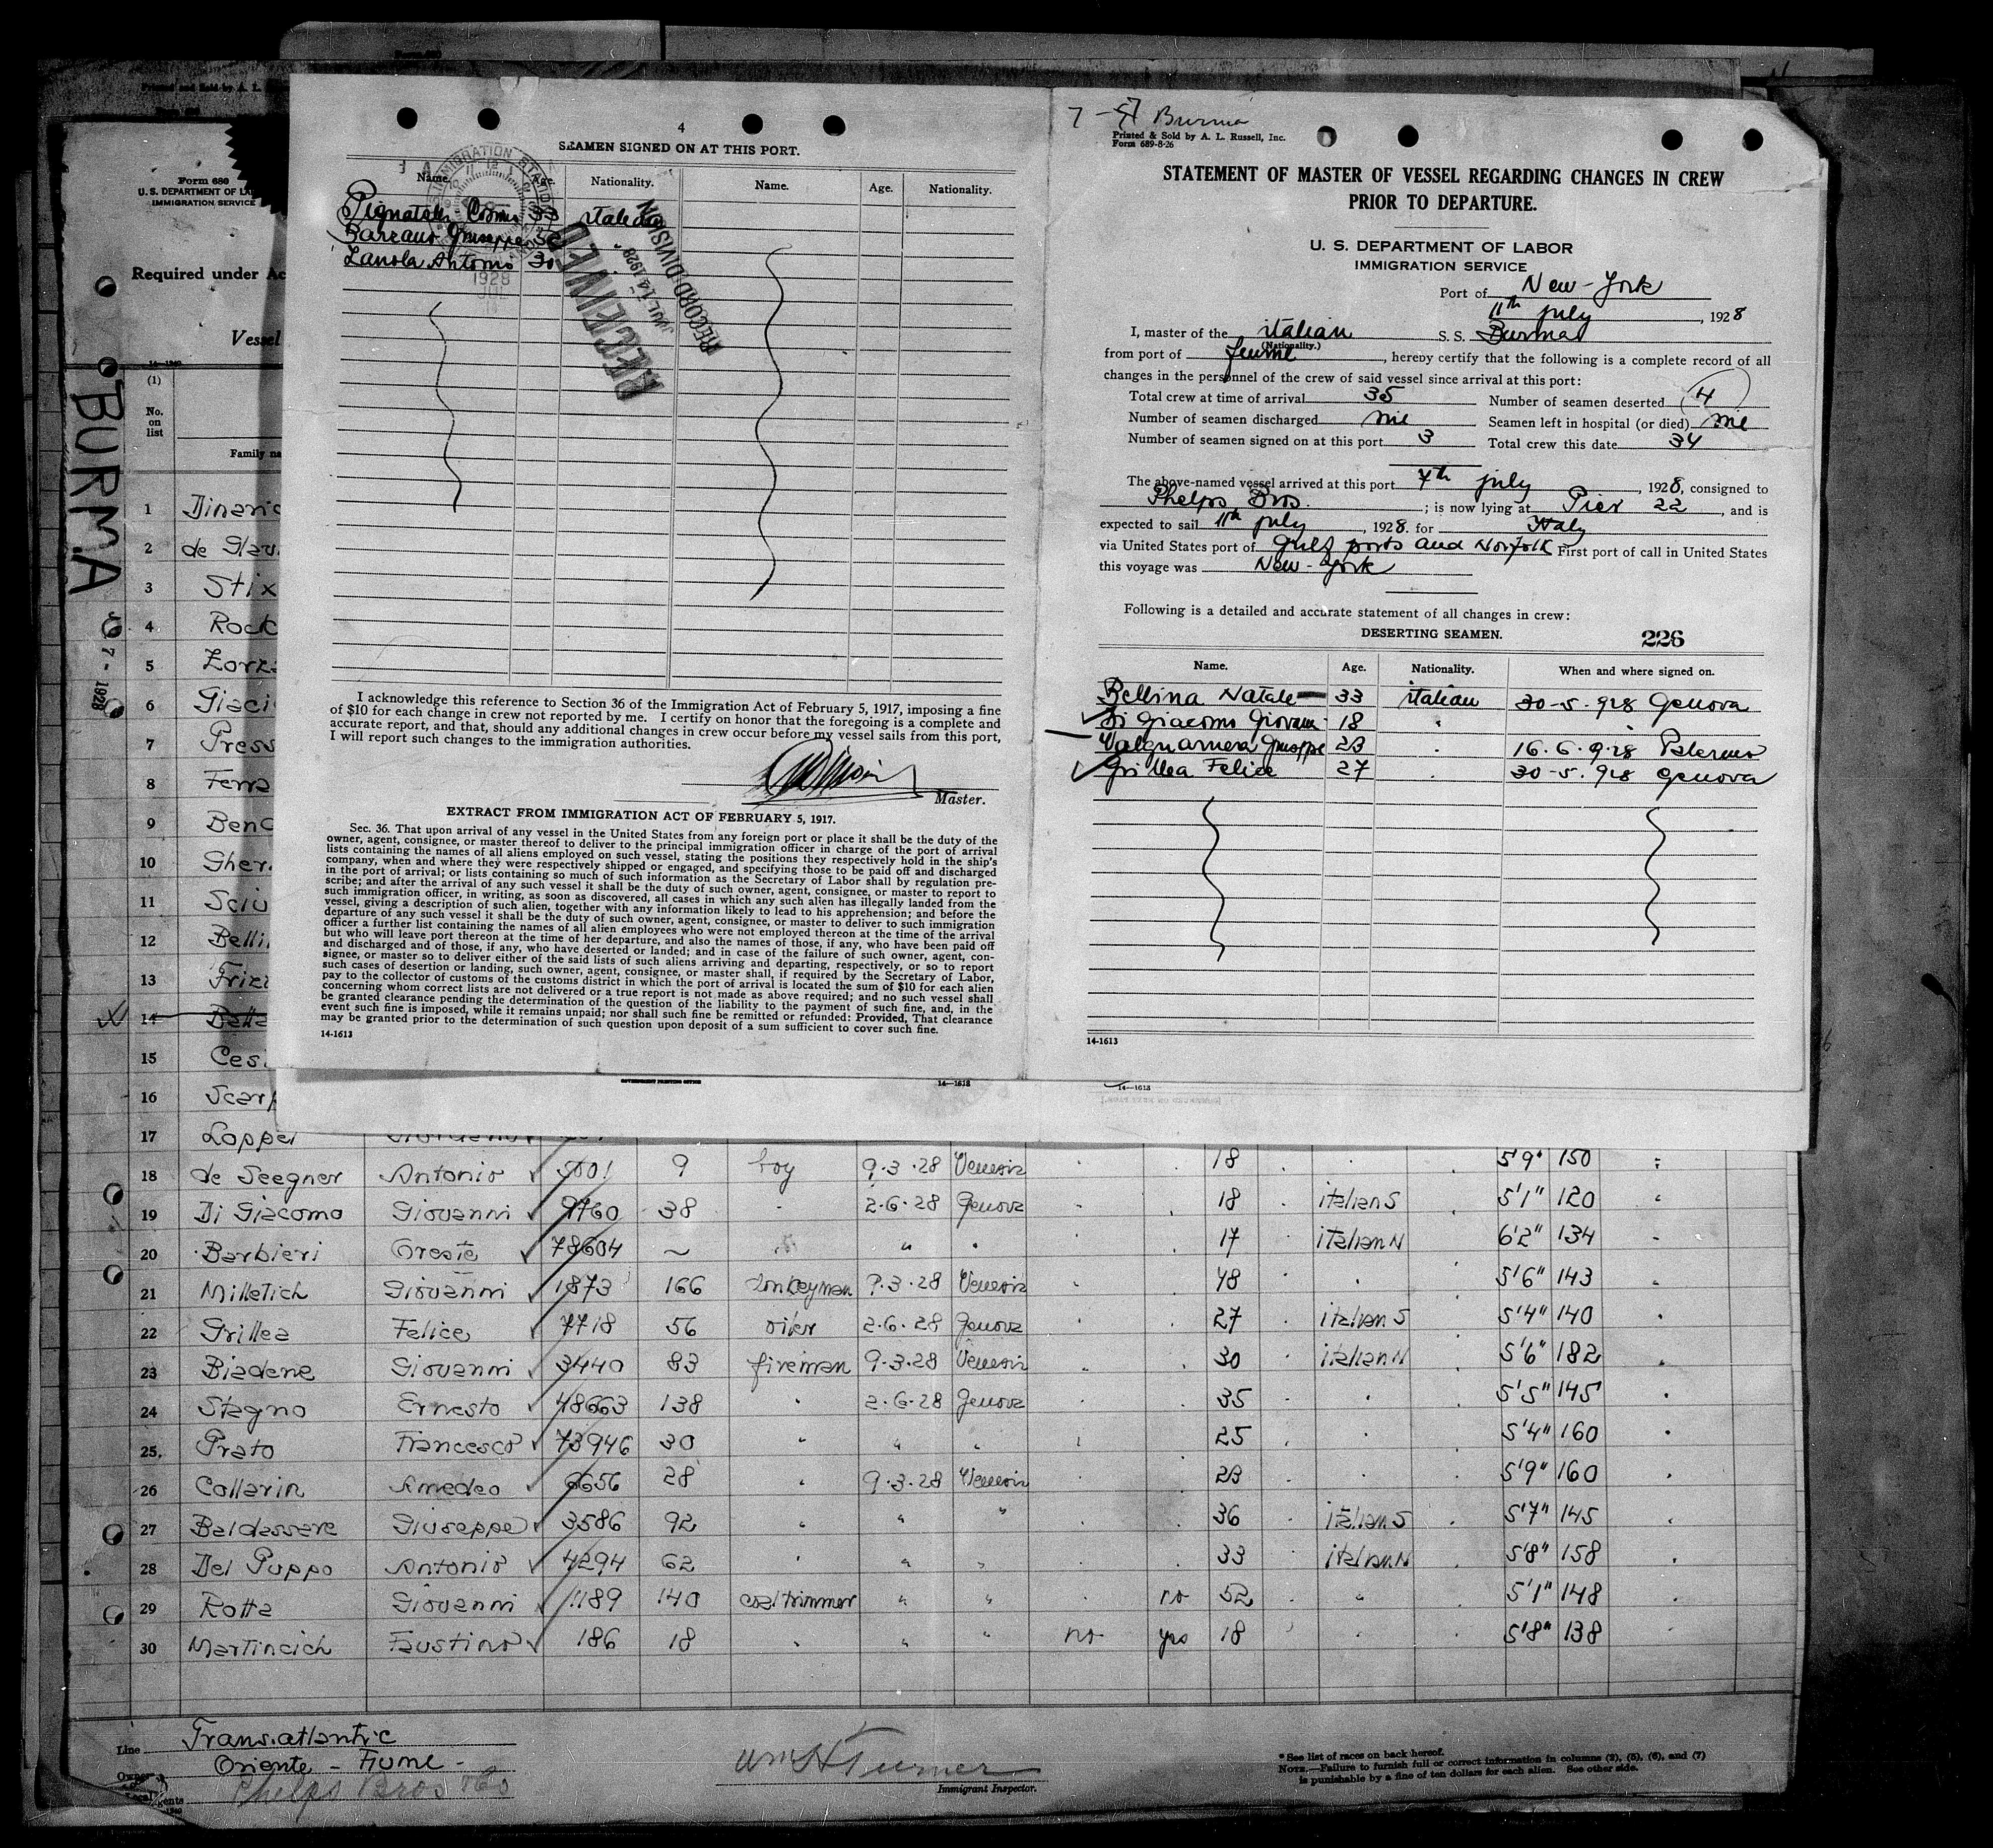 4
SEAMEN SIGNED ON AT THIS PORT.
Name. Age. Nationality. Name. Age. Nationality.
Pignatelli Cosimo 33 italian
Barzano Giuseppe
Lanola Antonio 30
IMMIGRATION
1928
RECEIVED
JUL 14 1928
RECORD DIVISION
I acknowledge this reference to Section 36 of the Immigration Act of February 5, 1917, imposing a fine
of $10 for each change in crew not reported by me. I certify on honor that the foregoing is a complete and
accurate report, and that, should any additional changes in crew occur before my vessel sails from this port,
I will report such changes to the immigration authorities.
Master.
EXTRACT FROM IMMIGRATION ACT OF FEBRUARY 5, 1917.
Sec. 36. That upon arrival of any vessel in the United States from any foreign port or place it shall be the duty of the
owner, agent, consignee, or master thereof to deliver to the principal immigration officer in charge of the port of arrival
lists containing the names of all aliens employed on such vessel, stating the positions they respectively hold in the ship's
company, when and where they were respectively shipped or engaged, and specifying those to be paid off and discharged
in the port of arrival; or lists containing so much of such information as the Secretary of Labor shall by regulation pre-
scribe; and after the arrival of any such vessel it shall be the duty of such owner, agent, consignee, or master to report to
such immigration officer, in writing, as soon as discovered, all cases in which any such alien has illegally landed from the
vessel, giving a description of such alien, together with any information likely to lead to his apprehension; and before the
departure of any such vessel it shall be the duty of such owner, agent, consignee, or master to deliver to such immigration
officer a further list containing the names of all alien employees who were not employed thereon at the time of the arrival
but who will leave port thereon at the time of her departure, and also the names of those, if any, who have been paid off
and discharged and of those, if any, who have deserted or landed; and in case of the failure of such owner, agent, con-
signee, or master so to deliver either of the said lists of such aliens arriving and departing, respectively, or so to report
such cases of desertion or landing, such owner, agent, consignee, or master shall, if required by the Secretary of Labor,
pay to the collector of customs of the customs district in which the port of arrival is located the sum of $10 for each alien
concerning whom correct lists are not delivered or a true report is not made as above required; and no such vessel shall
be granted clearance pending the determination of the question of the liability to the payment of such fine, and, in the
event such fine is imposed, while it remains unpaid; nor shall such fine be remitted or refunded: Provided, That clearance
may be granted prior to the determination of such question upon deposit of a sum sufficient to cover such fine.
14-1613
Burma
Printed & Sold by A. L. Russell, Inc.
Form 689-8-26
STATEMENT OF MASTER OF VESSEL REGARDING CHANGES IN CREW
PRIOR TO DEPARTURE.
U. S. DEPARTMENT OF LABOR
IMMIGRATION SERVICE
Port of New-York
11th july, 1928
I, master of the italian S. S. Burma
(Nationality.)
from port of fiume, hereby certify that the following is a complete record of all
changes in the personnel of the crew of said vessel since arrival at this port:
Total crew at time of arrival 35 Number of seamen deserted 4
Number of seamen discharged nil Seamen left in hospital (or died) nil
Number of seamen signed on at this port 3 Total crew this date 34
The above-named vessel arrived at this port 7th july, 1928, consigned to
Phelps Bros.; is now lying at Pier 22, and is
expected to sail 11th july, 1928. for Italy
via United States port of gulf ports and Norfolk First port of call in United States
this voyage was New-York
Following is a detailed and accurate statement of all changes in crew:
DESERTING SEAMEN. 226
Name. Age. Nationality. When and where signed on.
Bellina Natale 33 italian 30-5-928 Genova
Di Giacomo Giovanni 18 "
Valguarnera Giuseppe 23 " 16.6.928 Palermo
Grillea Felice 27 " 30-5-928 Genova
14-1613
Form 680
U. S. DEPARTMENT OF LA
IMMIGRATION SERVICE
Required under Ac
Vessel
BURMA
7-1928
(1)
No. on list
Family na
1 Dinaric
2 de Glav
3 Stix
4 Rock
5 Zorz
6 Giaci
7 Press
8 Ferra
9 Benc
10 Gher
11 Sciu
12 Belli
13 Friz
14 Batta
15 Ces
16 Scarp
17 Loppel
18 de Seegner Antonio 5001 9 boy 9.3.28 Venezia 18 5'9" 150
19 Di Giacomo Giovanni 9760 38 " 2.6.28 Genova 18 italian S 5'1" 120
20 Barbieri Oreste 78604 ~ " " 17 italian N 6'2" 134
21 Milletich Giovanni 1873 166 donkeyman 9.3.28 Venezia 48 5'6" 143
22 Grillea Felice 7718 56 oiler 2.6.28 Genova 27 italian S 5'4" 140
23 Biadene Giovanni 3440 83 fireman 9.3.28 Venezia 30 italian N 5'6" 182
24 Stagno Ernesto 48663 138 " 2.6.28 Genova 35 5'5" 145
25. Prato Francesco 73946 30 " " " 25 5'4" 160
26 Collarin Amedeo 6656 28 " 9.3.28 Venezia 23 5'9" 160
27 Baldassare Giuseppe 3586 92 " " " 36 italian S 5'7" 145
28 Del Puppo Antonio 4294 62 " " " 33 italian N 5'8" 158
29 Rotta Giovanni 1189 140 coaltrimmer " " no 52 " 5'1" 148
30 Martincich Faustino 186 18 " " " no yes 18 " 5'8" 138
Line Transatlantic
Owner Oriente - Fiume -
Phelps Bros & Co
Wm H Turner
Immigrant Inspector.
* See list of races on back hereof.
NOTE.—Failure to furnish full or correct information in columns (2), (5), (6), and (7)
is punishable by a fine of ten dollars for each alien. See other side.